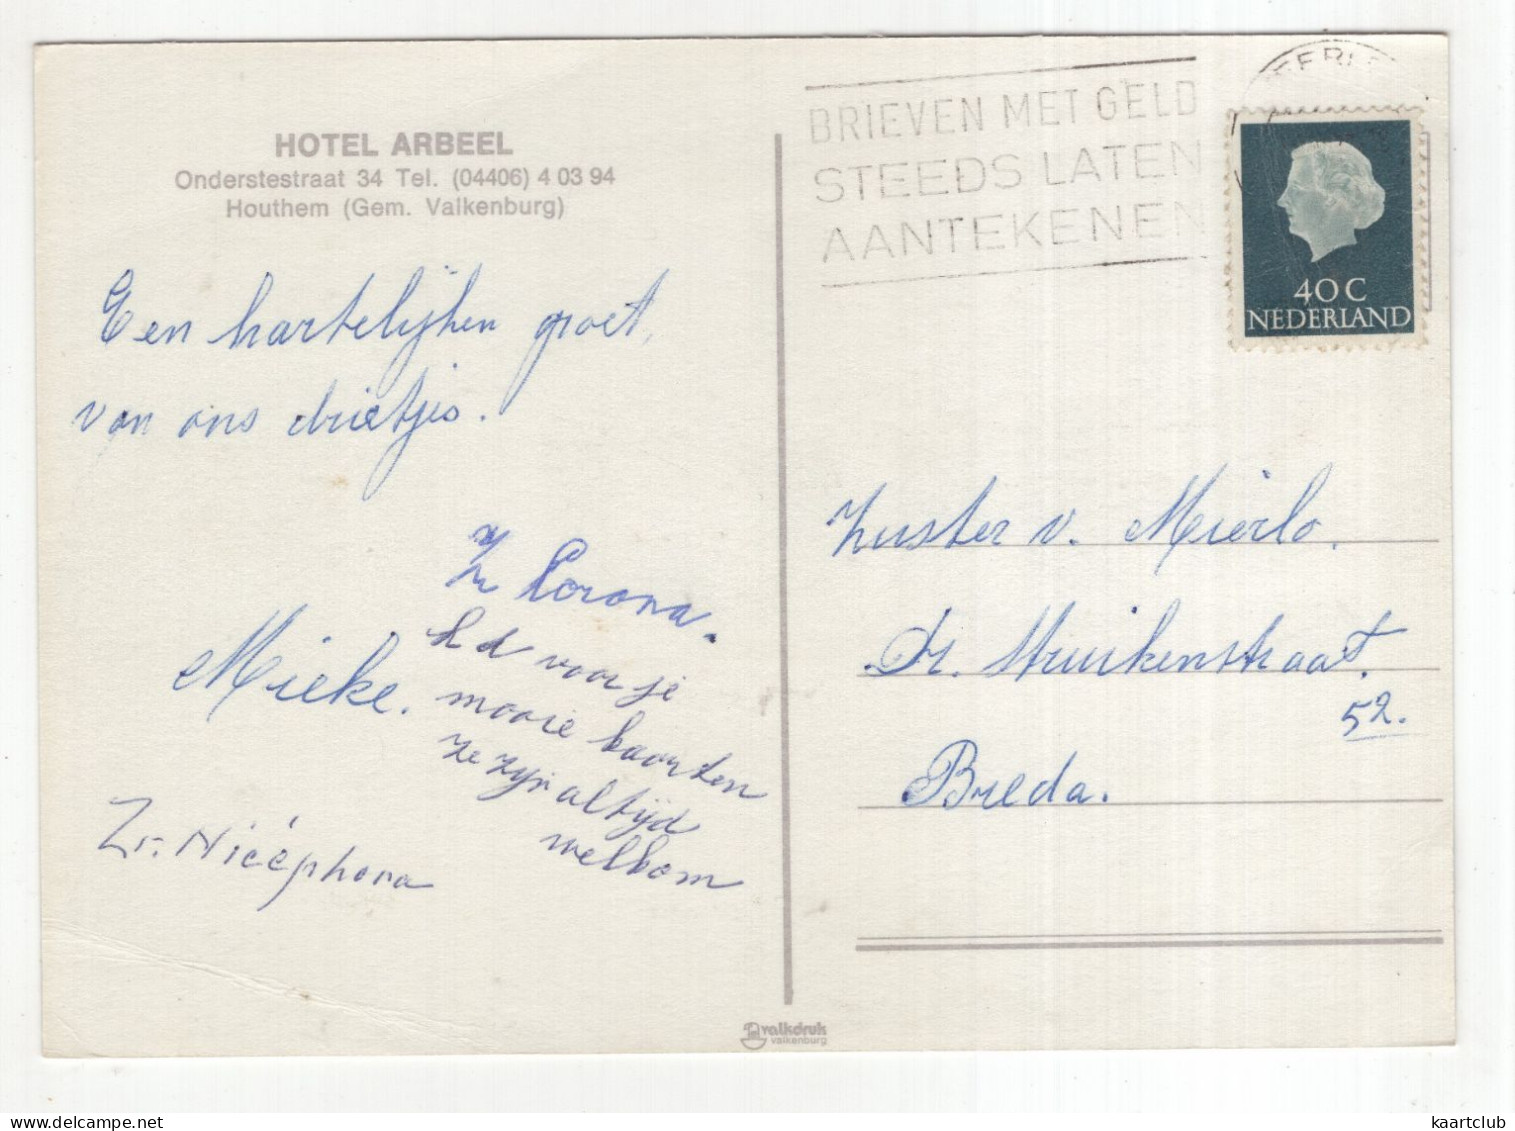 HOTEL ARBEEL
Onderstestraat 34 Tel. (04406) 4 03 94
Houthem (Gem. Valkenburg)
Een hartelijken groet,
van ons drietjes.
Zr Corona.
Mieke.
h d voor je
mooie kaarten
ze zijn altijd
welkom
Zr. Nicéphora
BRIEVEN MET GELD
STEEDS LATEN
AANTEKENEN
40 C
NEDERLAND
Zuster v. Mierlo.
Dr. Struikenstraat.
52.
Breda.
valkdruk
valkenburg
kaartclub